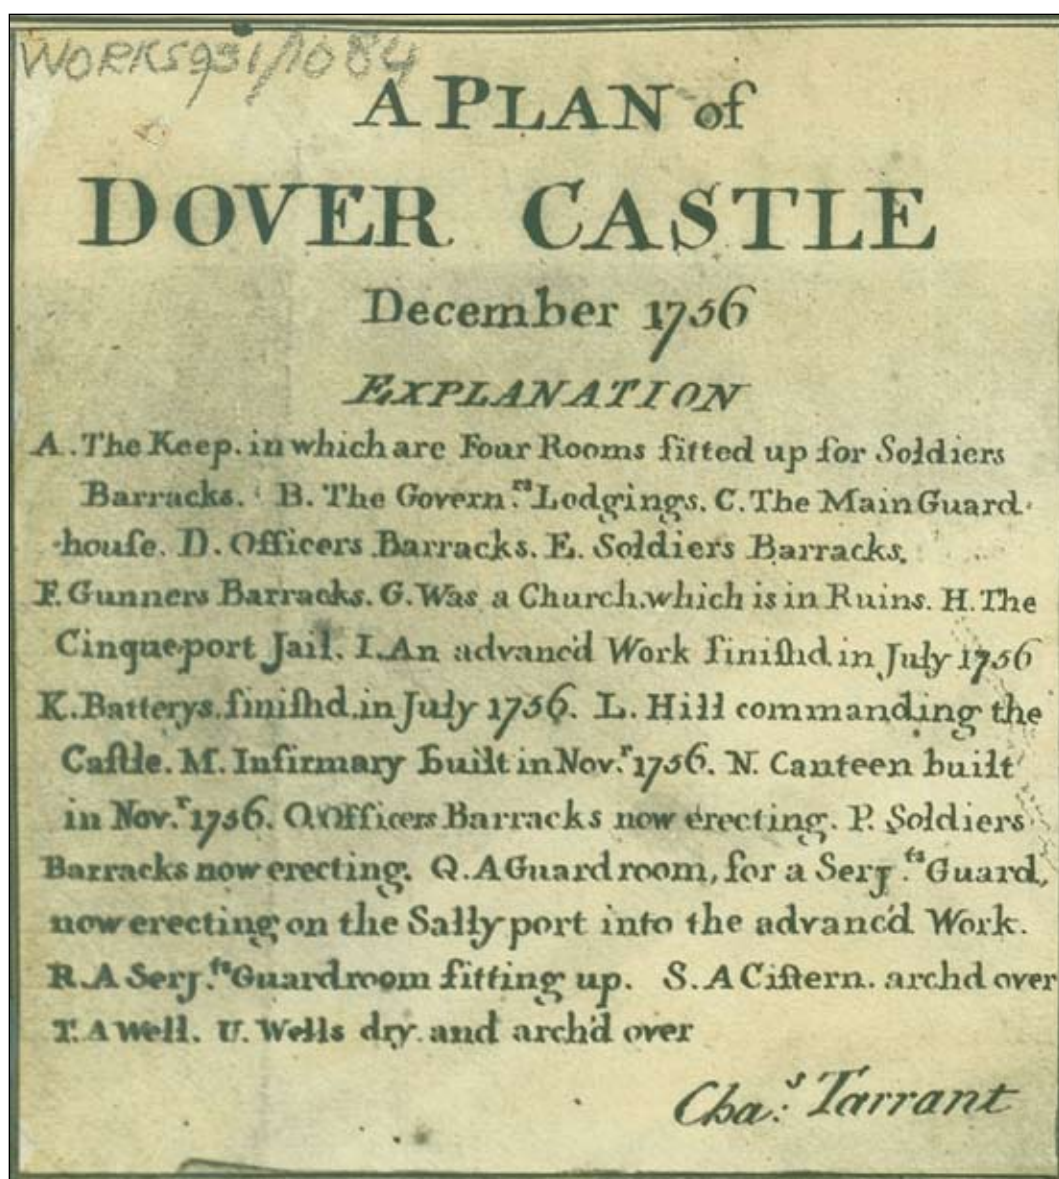 WORKS931/1084
A PLAN of
DOVER CASTLE
December 1756
EXPLANATION
A. The Keep. in which are Four Rooms fitted up for Soldiers
Barracks. B. The Govern.rs Lodgings. C. The Main Guard-
-houſe. D. Officers Barracks. E. Soldiers Barracks.
F. Gunners Barracks. G. Was a Church. which is in Ruins. H. The
Cinqueport Jail. I. An advanc'd Work finiſhd in July 1756
K. Batterys. finiſhd. in July 1756. L. Hill commanding the
Caſtle. M. Infirmary built in Nov.r 1756. N. Canteen built
in Nov.r 1756. O. Officers Barracks now erecting. P. Soldiers
Barracks now erecting. Q. A Guard room, for a Serj.ts Guard,
now erecting on the Sally port into the advanc'd Work.
R. A Serj.ts Guard room fitting up. S. A Ciſtern. archd over
T. A Well. U. Wells dry. and arch'd over
Cha.s Tarrant